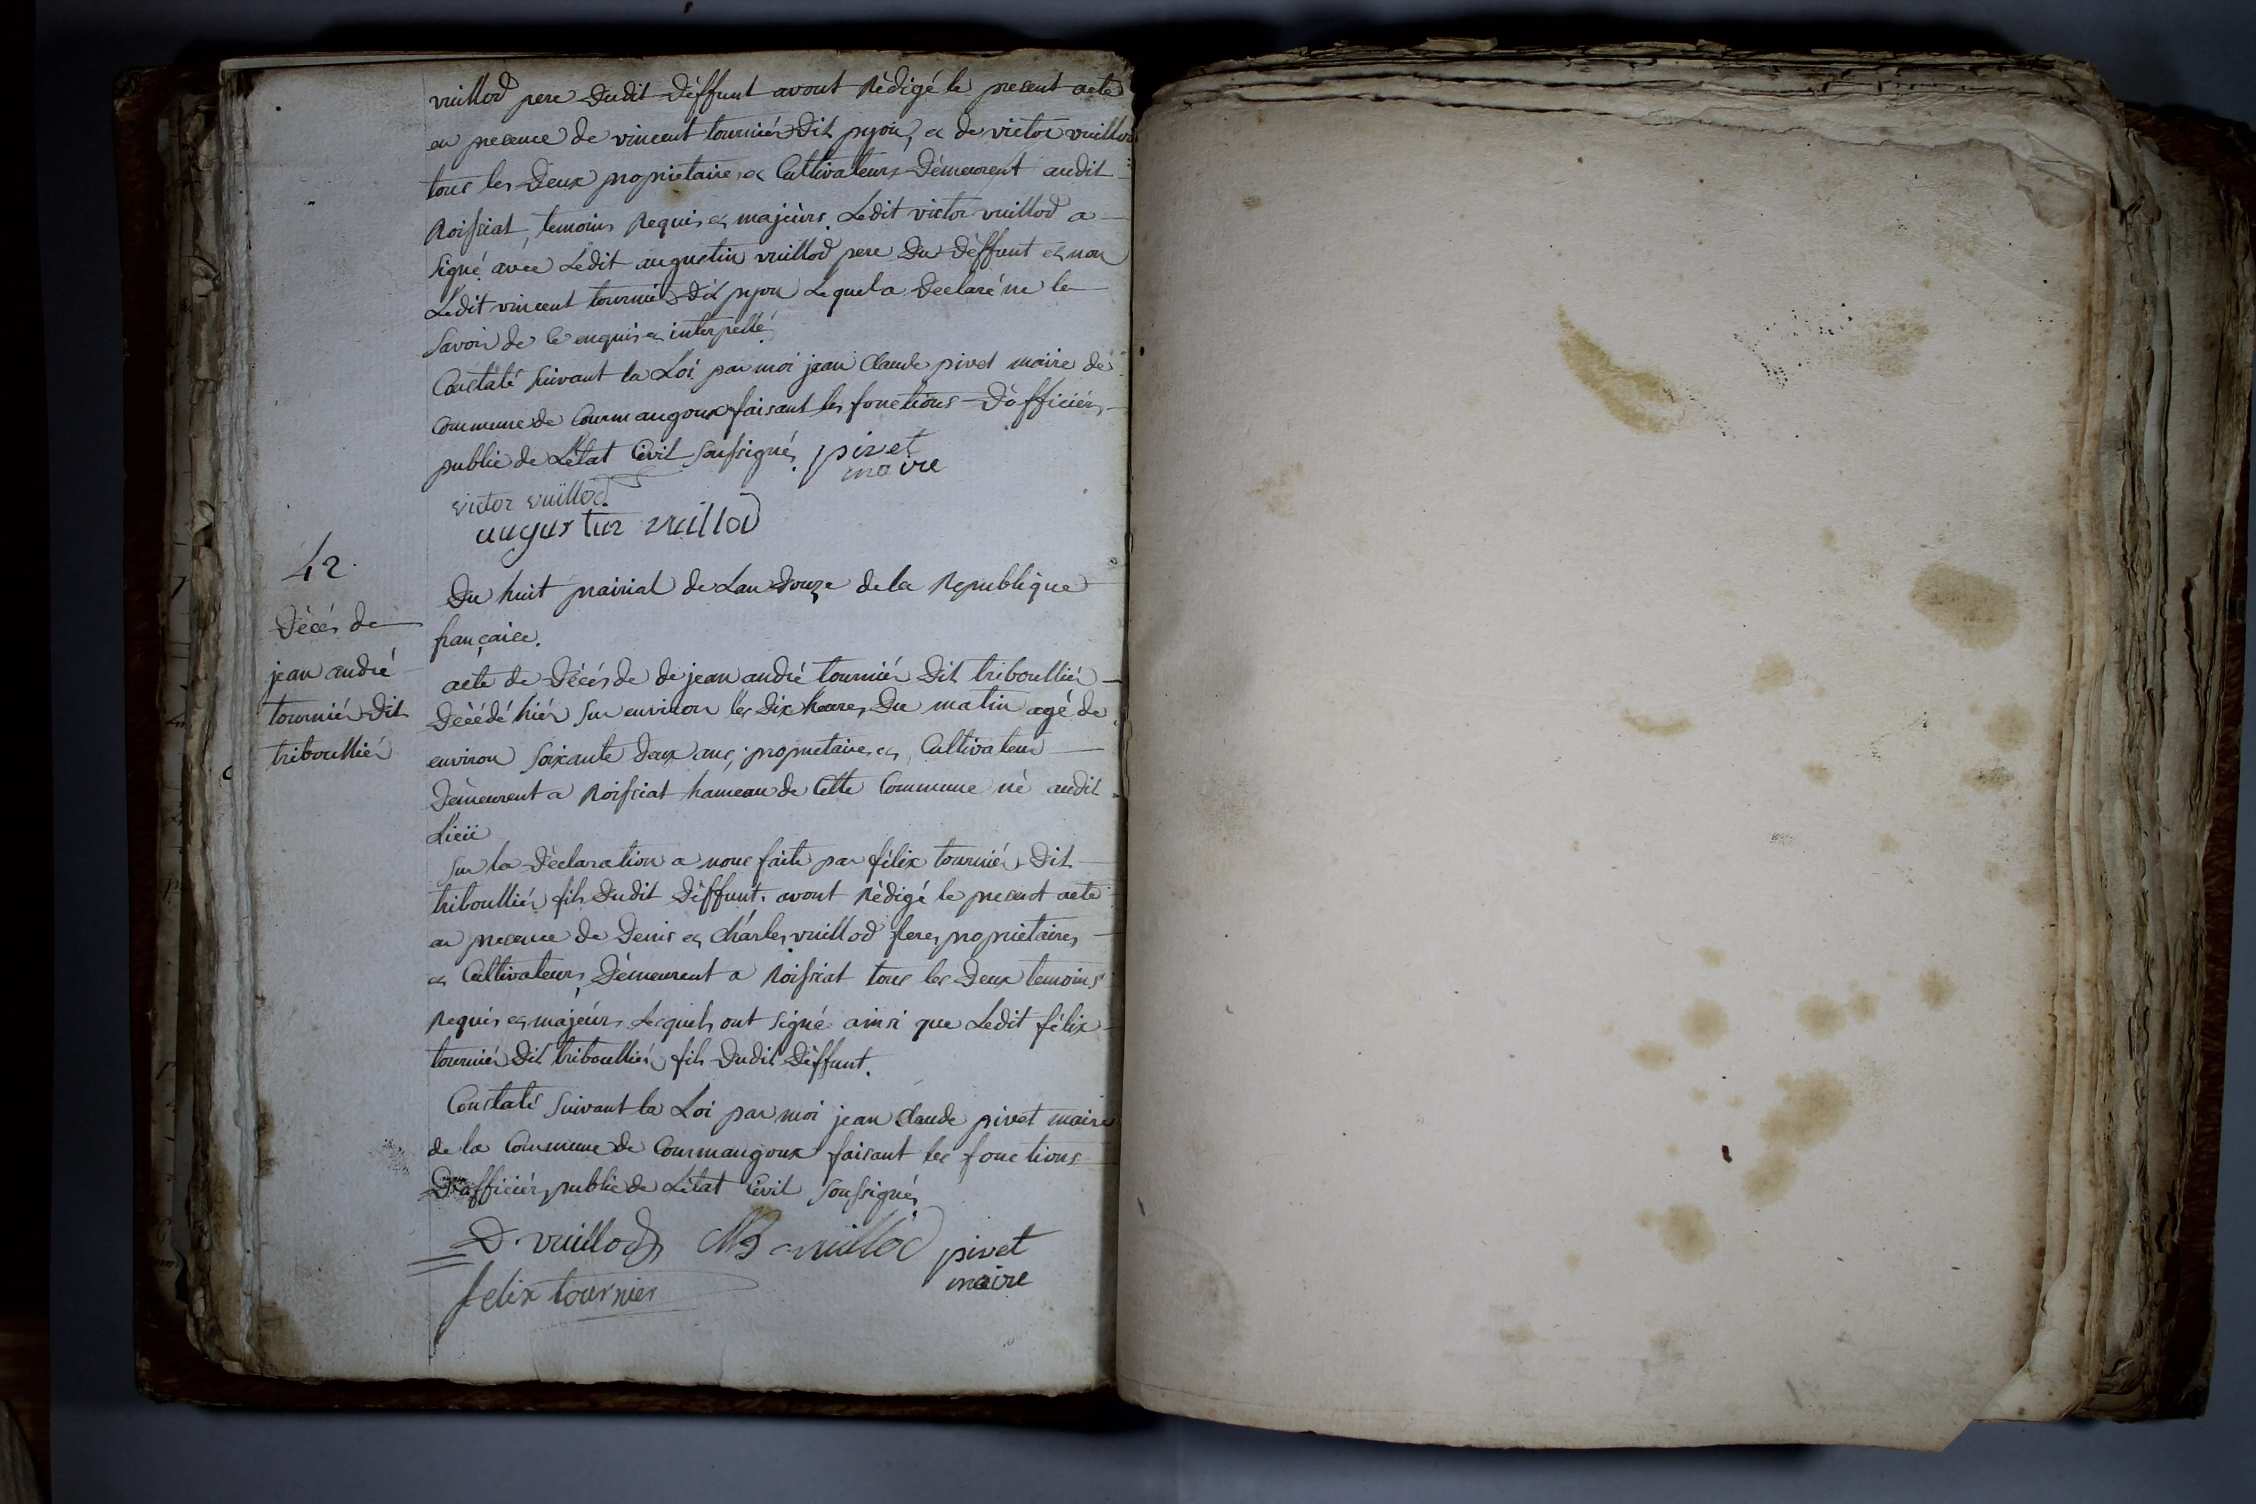 vuillod pere dudit déffunt avont rédigé le present acte
en presence de vincent tourniér dit pyon, et de victor vuillod
tous les deux proprietaires et Cultivateurs démeurent audit
Roissiat, temoins requis et majeürs. Ledit victor vuillod a
signé avec Ledit augustin vuillod pere du déffunt et non
Ledit vincent tourniér dit pyon Lequel a declaré ne le
savoir de ce enquis et interpellé.
Constaté suivant la Loi par moi jean Claude pivet maire de
Commune de Courmangoux faisant les fonctions D'officiér
public de L'état Civil soussigné. pivet
maire
victor vuillod
augustin vuillod
42.
Décés de
jean andré
tourniér dit
triboulliér
Du huit prairial de Lan douze de la Republique
française.
acte de décés de de jean andré tourniér dit triboulliér
décédé hiér sur environ les dix heures du matin agé de
environ soixante deux ans, proprietaire et Cultivateur
démeurent a Roissiat hameau de Cette Commune né audit
Lieü
Sur la déclaration a nous faite par félix tourniér dit
triboulliér fils dudit déffunt. avont rédigé le present acte
en presence de denis et chárles vuillod freres proprietaires
et Cultivateurs démeurent a Roissiat tous les deux temoins
requis et majeürs Lesquels ont signé ainsi que Ledit félix
tourniér dit triboulliér fils dudit déffunt.
Constaté suivant la Loi par moi jean Claude pivet maire
de la Commune de Courmangoux faisant les fonctions
D'officiér public de L'état Civil soussigné
D. vuillod vuillod pivet
maire
felix tournier